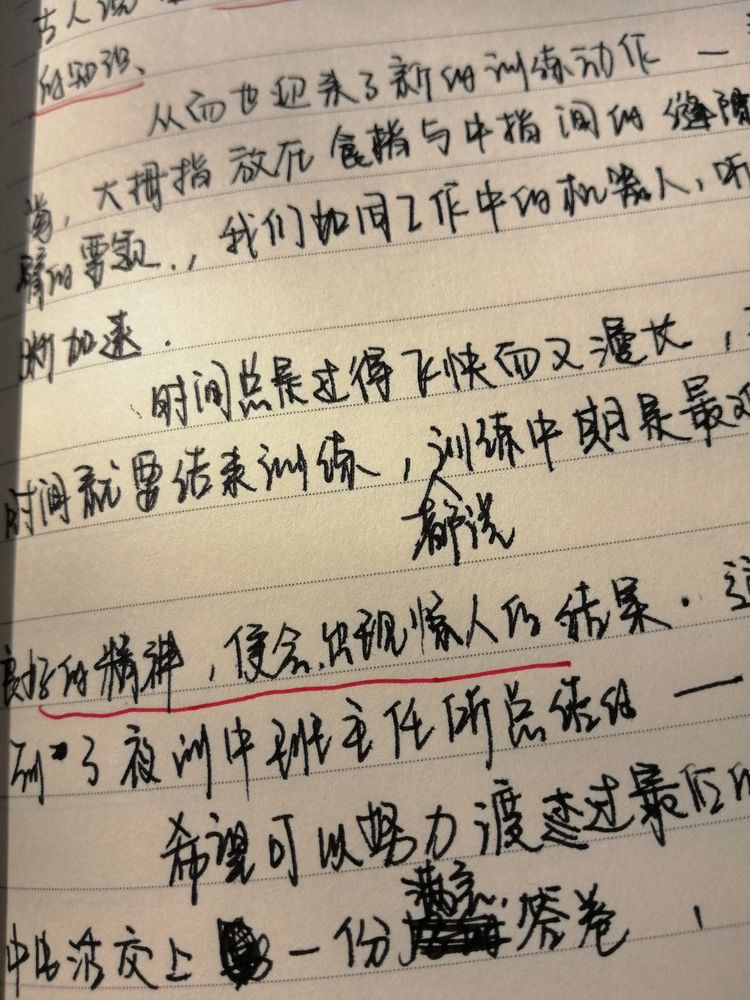 古人说
的知识、
从而也迎来了新的训练动作一
，大拇指放在食指与中指间的缝隙
臂的要领.，我们如同工作中的机器人，听
断加速.
时间总是过得飞快而又漫长，
时间就要结束训练，训练中期是最
都说
良好的精神，便会出现惊人的结果.这
到了夜训中班主任所总结的一
希望可以努力渡过最后的
中生活交上一份满意答卷，